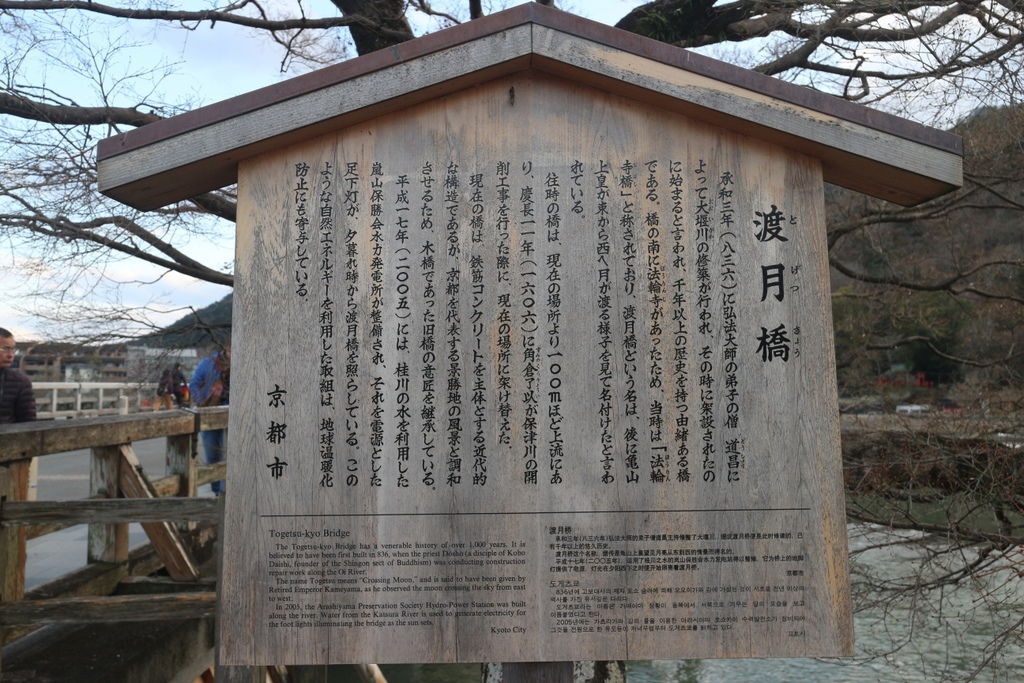 渡月橋
とげつきょう
承和三年（八三六）に弘法大師の弟子の僧 道昌に
よって大堰川の修築が行われ、その時に架設されたの
に始まると言われ、千年以上の歴史を持つ由緒ある橋
である。橋の南に法輪寺があったため、当時は「法輪
寺橋」と称されており、渡月橋という名は、後に亀山
上皇が東から西へ月が渡る様子を見て名付けたと言わ
れている。
往時の橋は、現在の場所より一〇〇mほど上流にあ
り、慶長一一年（一六〇六）に角倉了以が保津川の開
削工事を行った際に、現在の場所に架け替えた。
現在の橋は、鉄筋コンクリートを主体とする近代的
な構造であるが、京都を代表する景勝地の風景と調和
させるため、木橋であった旧橋の意匠を継承している。
平成一七年（二〇〇五）には、桂川の水を利用した
嵐山保勝会水力発電所が整備され、それを電源とした
足下灯が、夕暮れ時から渡月橋を照らしている。この
ような自然エネルギーを利用した取組は、地球温暖化
防止にも寄与している。
京都市
Togetsu-kyo Bridge
The Togetsu-kyo Bridge has a venerable history of over 1,000 years. It is
believed to have been first built in 836, when the priest Dōshō (a disciple of Kobo
Daishi, founder of the Shingon sect of Buddhism) was conducting construction
repair work along the Oi River.
The name Togetsu means "Crossing Moon," and is said to have been given by
Retired Emperor Kameyama, as he observed the moon crossing the sky from east
to west.
In 2005, the Arashiyama Preservation Society Hydro-Power Station was built
along the river. Water from the Katsura River is used to generate electricity for
the foot lights illuminating the bridge as the sun sets.
Kyoto City
渡月桥
有千年以上的悠久历史。
京都市
도게츠교
교토시